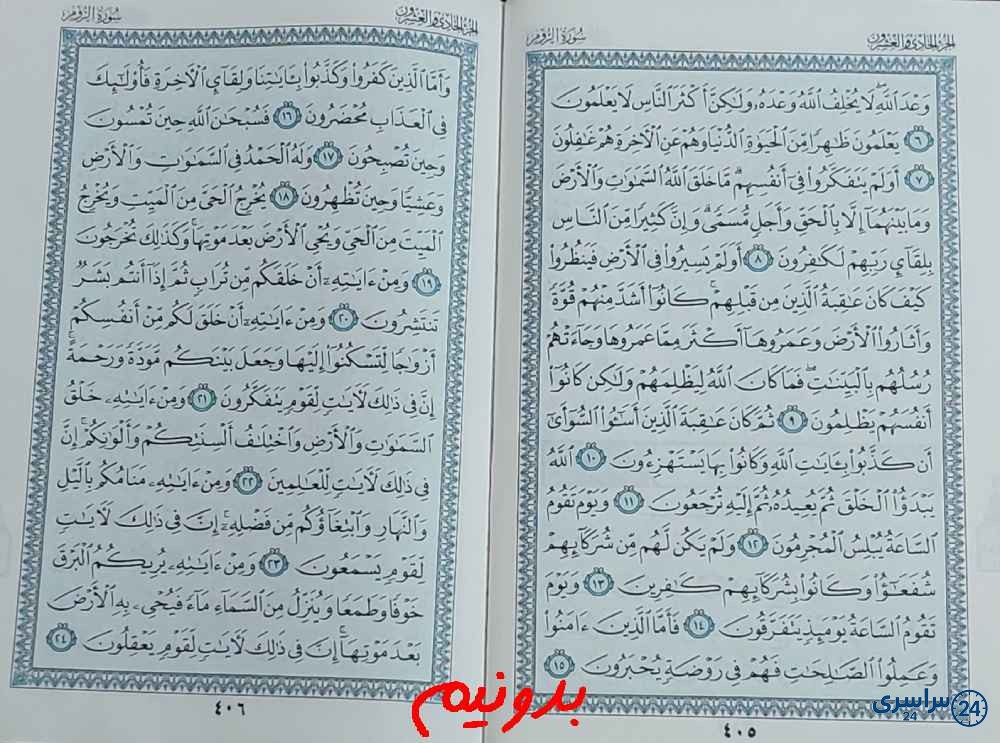 الجزء الحادي والعشرون
سورة الروم
وَعْدَ ٱللَّهِۖ لَا يُخْلِفُ ٱللَّهُ وَعْدَهُۥ وَلَٰكِنَّ أَكْثَرَ ٱلنَّاسِ لَا يَعْلَمُونَ
٦ يَعْلَمُونَ ظَٰهِرًا مِّنَ ٱلْحَيَوٰةِ ٱلدُّنْيَا وَهُمْ عَنِ ٱلْءَاخِرَةِ هُمْ غَٰفِلُونَ
٧ أَوَلَمْ يَتَفَكَّرُوا۟ فِىٓ أَنفُسِهِمۗ مَّا خَلَقَ ٱللَّهُ ٱلسَّمَٰوَٰتِ وَٱلْأَرْضَ
وَمَا بَيْنَهُمَآ إِلَّا بِٱلْحَقِّ وَأَجَلٍ مُّسَمًّىۗ وَإِنَّ كَثِيرًا مِّنَ ٱلنَّاسِ
بِلِقَآئِ رَبِّهِمْ لَكَٰفِرُونَ ٨ أَوَلَمْ يَسِيرُوا۟ فِى ٱلْأَرْضِ فَيَنظُرُوا۟
كَيْفَ كَانَ عَٰقِبَةُ ٱلَّذِينَ مِن قَبْلِهِمْۚ كَانُوٓا۟ أَشَدَّ مِنْهُمْ قُوَّةً
وَأَثَارُوا۟ ٱلْأَرْضَ وَعَمَرُوهَآ أَكْثَرَ مِمَّا عَمَرُوهَا وَجَآءَتْهُمْ
رُسُلُهُم بِٱلْبَيِّنَٰتِۖ فَمَا كَانَ ٱللَّهُ لِيَظْلِمَهُمْ وَلَٰكِن كَانُوٓا۟
أَنفُسَهُمْ يَظْلِمُونَ ٩ ثُمَّ كَانَ عَٰقِبَةَ ٱلَّذِينَ أَسَٰٓـُٔوا۟ ٱلسُّوٓأَىٰٓ
أَن كَذَّبُوا۟ بِـَٔايَٰتِ ٱللَّهِ وَكَانُوا۟ بِهَا يَسْتَهْزِءُونَ ١٠ ٱللَّهُ
يَبْدَؤُا۟ ٱلْخَلْقَ ثُمَّ يُعِيدُهُۥ ثُمَّ إِلَيْهِ تُرْجَعُونَ ١١ وَيَوْمَ تَقُومُ
ٱلسَّاعَةُ يُبْلِسُ ٱلْمُجْرِمُونَ ١٢ وَلَمْ يَكُن لَّهُم مِّن شُرَكَآئِهِمْ
شُفَعَٰٓؤُا۟ وَكَانُوا۟ بِشُرَكَآئِهِمْ كَٰفِرِينَ ١٣ وَيَوْمَ
تَقُومُ ٱلسَّاعَةُ يَوْمَئِذٍ يَتَفَرَّقُونَ ١٤ فَأَمَّا ٱلَّذِينَ ءَامَنُوا۟
وَعَمِلُوا۟ ٱلصَّٰلِحَٰتِ فَهُمْ فِى رَوْضَةٍ يُحْبَرُونَ ١٥
٤٠٥
الجزء الحادي والعشرون
سورة الروم
وَأَمَّا ٱلَّذِينَ كَفَرُوا۟ وَكَذَّبُوا۟ بِـَٔايَٰتِنَا وَلِقَآئِ ٱلْءَاخِرَةِ فَأُو۟لَٰٓئِكَ
فِى ٱلْعَذَابِ مُحْضَرُونَ ١٦ فَسُبْحَٰنَ ٱللَّهِ حِينَ تُمْسُونَ
وَحِينَ تُصْبِحُونَ ١٧ وَلَهُ ٱلْحَمْدُ فِى ٱلسَّمَٰوَٰتِ وَٱلْأَرْضِ
وَعَشِيًّا وَحِينَ تُظْهِرُونَ ١٨ يُخْرِجُ ٱلْحَىَّ مِنَ ٱلْمَيِّتِ وَيُخْرِجُ
ٱلْمَيِّتَ مِنَ ٱلْحَىِّ وَيُحْىِ ٱلْأَرْضَ بَعْدَ مَوْتِهَاۚ وَكَذَٰلِكَ تُخْرَجُونَ
١٩ وَمِنْ ءَايَٰتِهِۦٓ أَنْ خَلَقَكُم مِّن تُرَابٍ ثُمَّ إِذَآ أَنتُم بَشَرٌ
تَنتَشِرُونَ ٢٠ وَمِنْ ءَايَٰتِهِۦٓ أَنْ خَلَقَ لَكُم مِّنْ أَنفُسِكُمْ
أَزْوَٰجًا لِّتَسْكُنُوٓا۟ إِلَيْهَا وَجَعَلَ بَيْنَكُم مَّوَدَّةً وَرَحْمَةًۚ
إِنَّ فِى ذَٰلِكَ لَءَايَٰتٍ لِّقَوْمٍ يَتَفَكَّرُونَ ٢١ وَمِنْ ءَايَٰتِهِۦ خَلْقُ
ٱلسَّمَٰوَٰتِ وَٱلْأَرْضِ وَٱخْتِلَٰفُ أَلْسِنَتِكُمْ وَأَلْوَٰنِكُمْۚ إِنَّ
فِى ذَٰلِكَ لَءَايَٰتٍ لِّلْعَٰلِمِينَ ٢٢ وَمِنْ ءَايَٰتِهِۦ مَنَامُكُم بِٱلَّيْلِ
وَٱلنَّهَارِ وَٱبْتِغَآؤُكُم مِّن فَضْلِهِۦٓۚ إِنَّ فِى ذَٰلِكَ لَءَايَٰتٍ
لِّقَوْمٍ يَسْمَعُونَ ٢٣ وَمِنْ ءَايَٰتِهِۦ يُرِيكُمُ ٱلْبَرْقَ
خَوْفًا وَطَمَعًا وَيُنَزِّلُ مِنَ ٱلسَّمَآءِ مَآءً فَيُحْىِۦ بِهِ ٱلْأَرْضَ
بَعْدَ مَوْتِهَآۚ إِنَّ فِى ذَٰلِكَ لَءَايَٰتٍ لِّقَوْمٍ يَعْقِلُونَ ٢٤
٤٠٦
بدونیم
سراسری 24
24